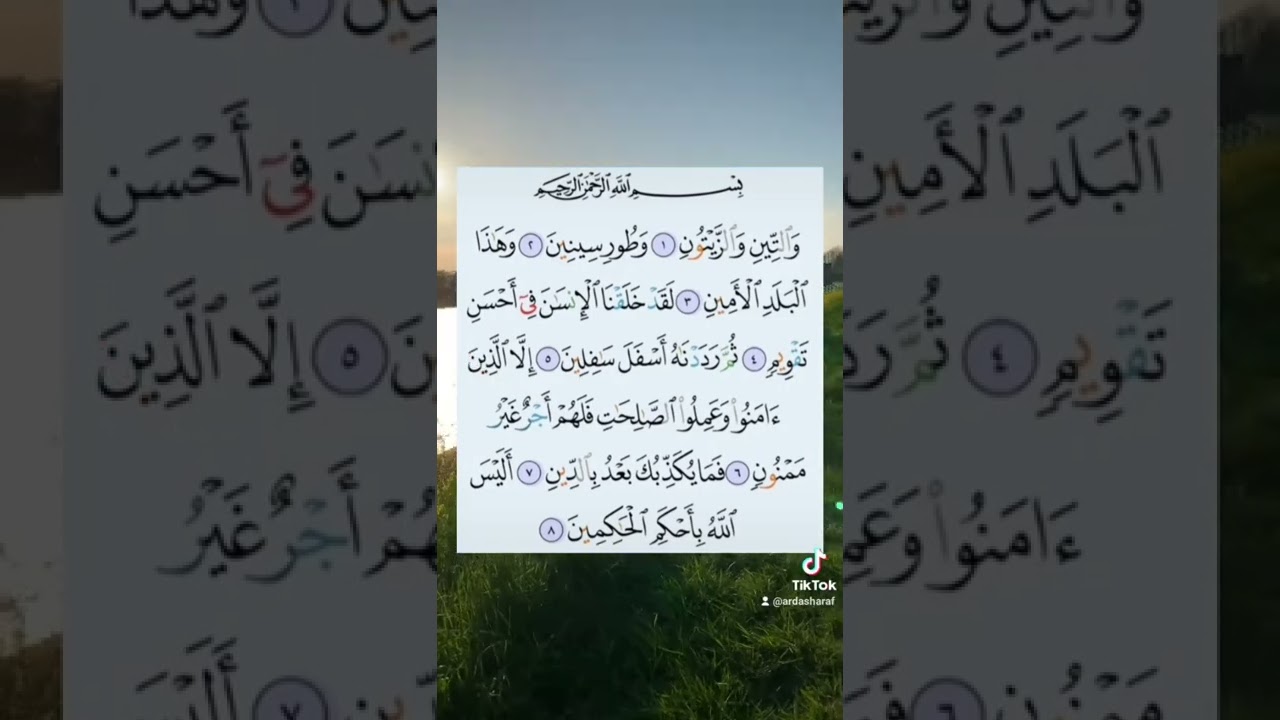 بِسْمِ ٱللَّهِ ٱلرَّحْمَٰنِ ٱلرَّحِيمِ
وَٱلتِّينِ وَٱلزَّيْتُونِ ١ وَطُورِ سِينِينَ ٢ وَهَٰذَا
ٱلْبَلَدِ ٱلْأَمِينِ ٣ لَقَدْ خَلَقْنَا ٱلْإِنسَٰنَ فِىٓ أَحْسَنِ
تَقْوِيمٍ ٤ ثُمَّ رَدَدْنَٰهُ أَسْفَلَ سَٰفِلِينَ ٥ إِلَّا ٱلَّذِينَ
ءَامَنُوا۟ وَعَمِلُوا۟ ٱلصَّٰلِحَٰتِ فَلَهُمْ أَجْرٌ غَيْرُ
مَمْنُونٍ ٦ فَمَا يُكَذِّبُكَ بَعْدُ بِٱلدِّينِ ٧ أَلَيْسَ
ٱللَّهُ بِأَحْكَمِ ٱلْحَٰكِمِينَ ٨
TikTok
@ardasharaf